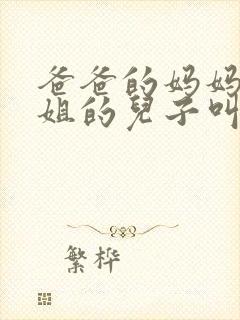 爸爸的妈妈
姐的兒子叫
繁桦